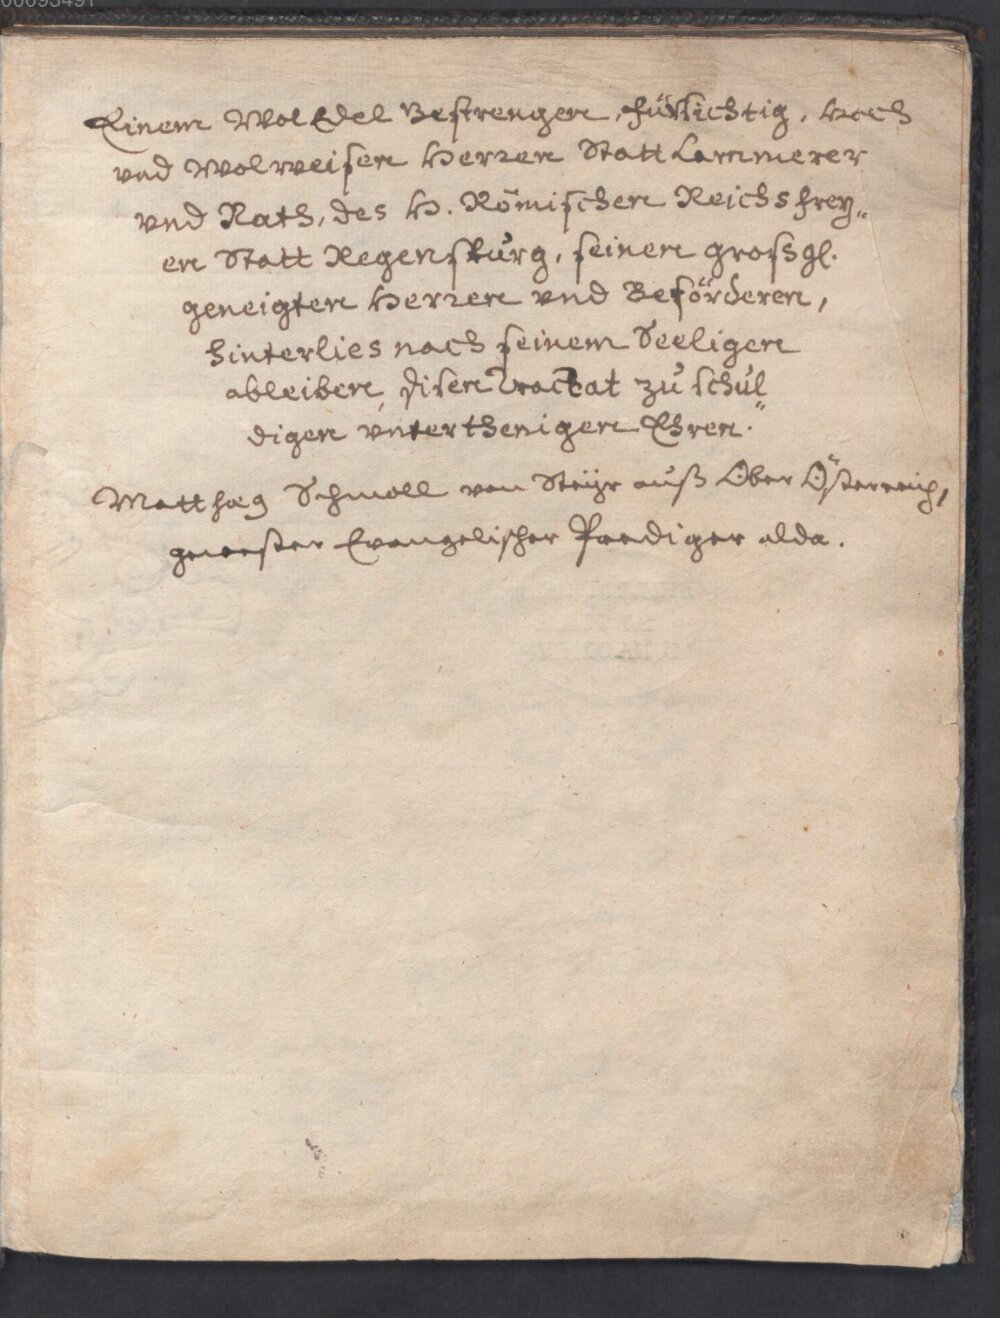 00093491
Einem WolEdel Gestrengen, fürsichtig, hoch
vnd Wolweisen Herren Statt Cammerer
vnd Rath, des H. Römischen Reichs frey„
en Statt Regenspurg, seinen grossgl.
geneigten Herren vnd Beförderen,
hinterlies nach seinem Seeligen
ableiben, disen Tractat zu schul„
digen vnterthenigen Ehren.
Matthæ9 Schmoll von Steÿr auß Ober Österreich,
gewester Evangelischer Prediger alda.